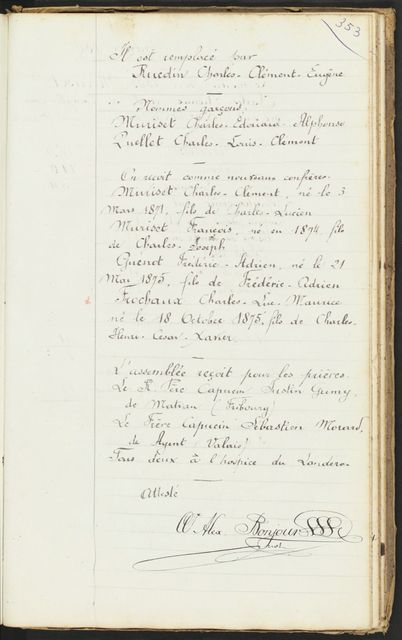 353
Il est remplacé par
Ruedin Charles-Clément-Eugène
Nommés garçons
Muriset Charles-Edouard-Alphonse
Quellet Charles-Louis-Clément
On reçoit comme nouveaux confrères
Muriset Charles-Clément, né le 3
Mars 1871, fils de Charles-Lucien
Muriset François, né en 1874 fils
de Charles-Joseph
Guenot Frédéric-Adrien, né le 21
Mai 1875, fils de Frédéric-Adrien
Frochaux Charles-Luc-Maurice
né le 18 Octobre 1875, fils de Charles-
Henri-César-Xavier
L'assemblée reçoit pour les prières
Le R. Père Capucin Justin
de Matran (Fribourg)
Le Frère Capucin Sébastien Morard,
de Ayent (Valais)
Tous deux à l'hospice du Landeron
Attesté
Alex Bonjour